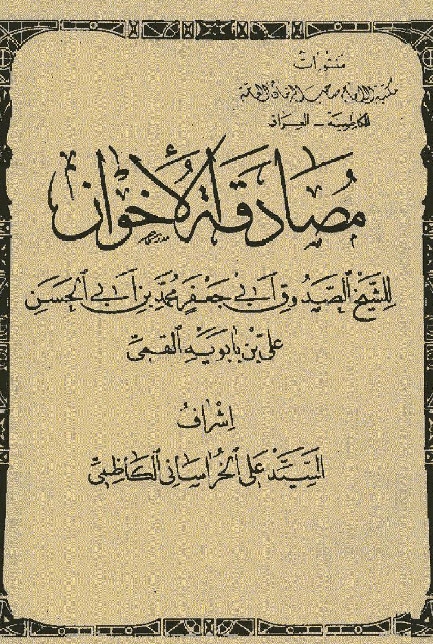 منشورات
مكتبة الإمام صاحب الزمان العامة
الكاظمية - العراق
مُصَادَقَةُ الأخْوَانِ
لِلشَّيْخِ الصَّدُوقِ أَبِي جَعْفَرٍ مُحَمَّدِ بْنِ أَبِي الْحَسَنِ
عَلِيِّ بْنِ بَابَوَيْهِ الْقُمِّيِّ
إِشْرَافُ
السَّيِّدِ عَلِيِّ الْخُرَاسَانِي الْكَاظِمِيِّ